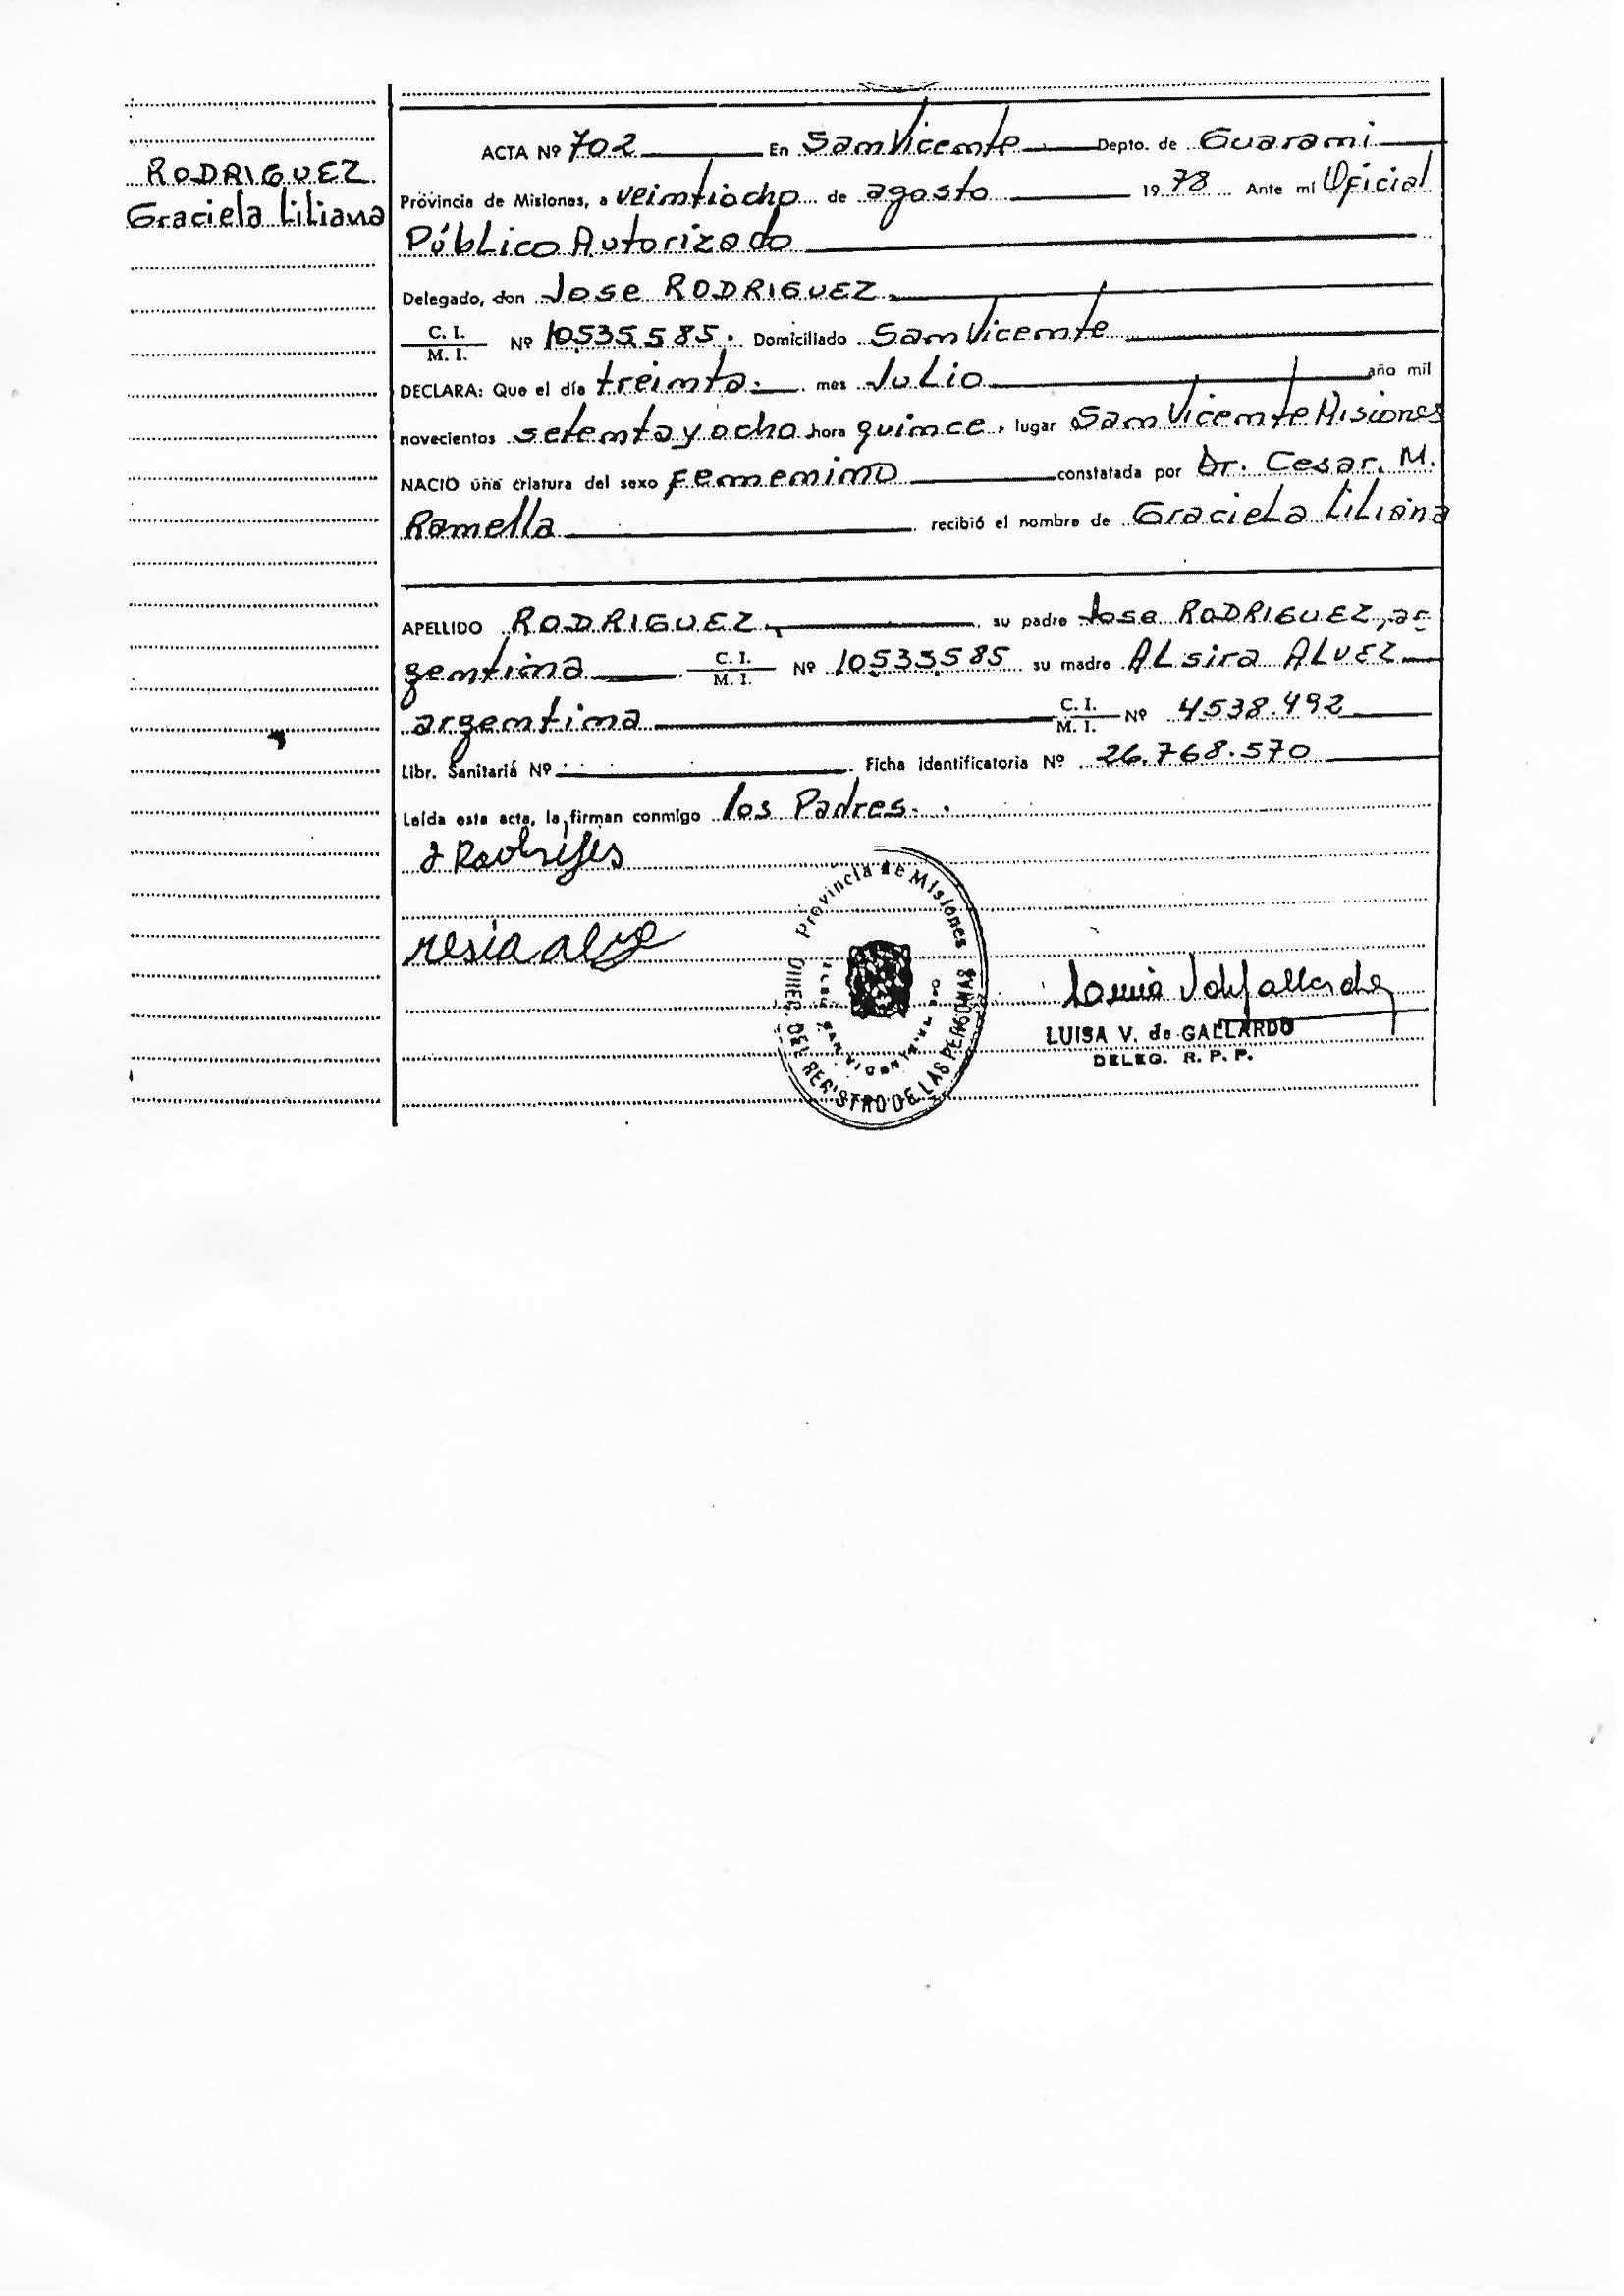 RODRIGUEZ
Graciela Liliana
ACTA Nº 702 En San Vicente Depto. de Guarani
Provincia de Misiones, a veintiocho de agosto 1978 Ante mí Oficial
Público Autorizado
Delegado, don Jose RODRIGUEZ
C. I.
M. I. Nº 10.535.585. Domiciliado San Vicente
DECLARA: Que el día treinta. mes Julio año mil
novecientos setenta y ocho hora quince. lugar San Vicente Misiones
NACIO una criatura del sexo Femenino constatada por Dr. Cesar. M.
Ramella recibió el nombre de Graciela Liliana
APELLIDO RODRIGUEZ, su padre Jose RODRIGUEZ, ar-
gentina C. I. M. I. Nº 10.535.585 su madre ALsira ALVEZ
argentina C. I. M. I. Nº 4538.492
Libr. Sanitaria Nº Ficha identificatoria Nº 26.768.570
Leída esta acta, la firman conmigo los Padres.
Provincia de Misiones
DIREC. DEL REGISTRO DE LAS PERSONAS
SAN VICENTE
LUISA V. de GALLARDO
DELEG. R. P. P.